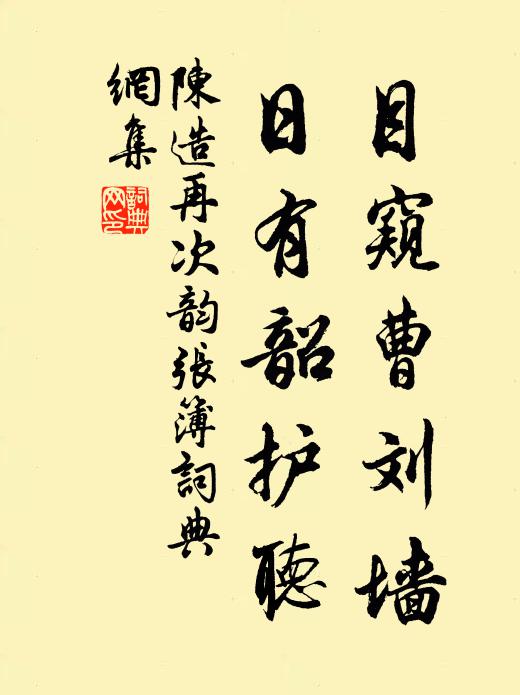 目窥曹刘墙
日有韶护聴
陳造再次韵張簿詞典
網集
詞典網印